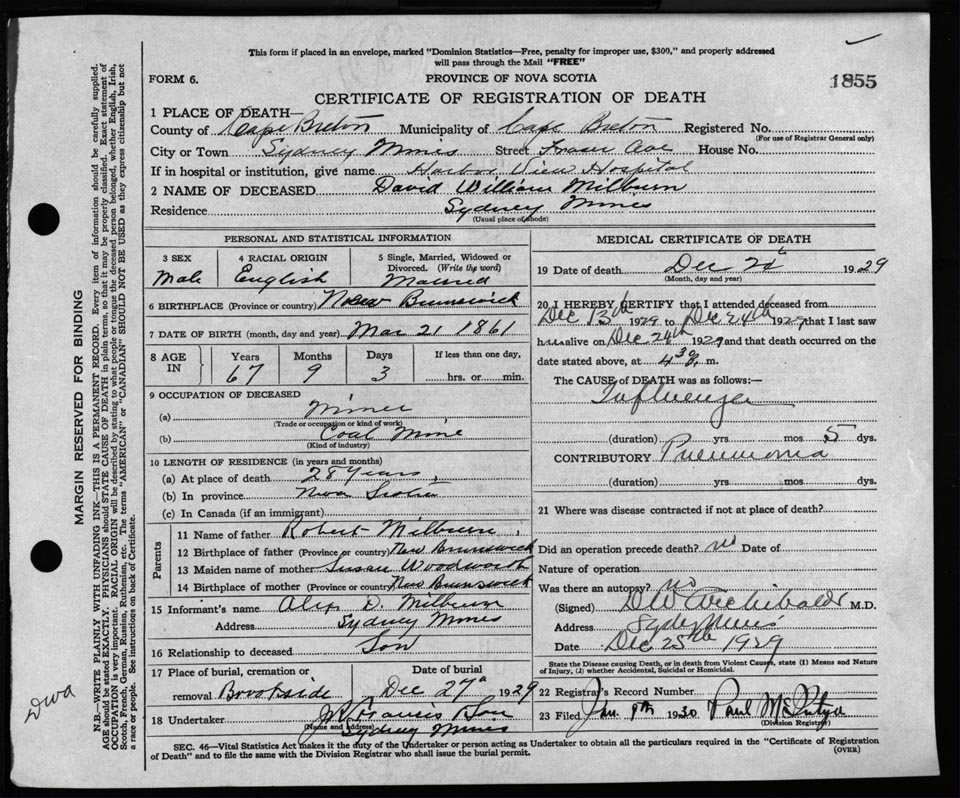 This form if placed in an envelope, marked "Dominion Statistics—Free, penalty for improper use, $300," and properly addressed
will pass through the Mail "FREE"
FORM 6. PROVINCE OF NOVA SCOTIA 1855
CERTIFICATE OF REGISTRATION OF DEATH
1 PLACE OF DEATH—
County of Cape Breton Municipality of Cape Breton Registered No.
(For use of Registrar General only)
City or Town Sydney Mines Street Fraser Ave House No.
If in hospital or institution, give name Harbor View Hospital
2 NAME OF DECEASED David William Milburn
Residence Sydney Mines
(Usual place of abode)
PERSONAL AND STATISTICAL INFORMATION
3 SEX 4 RACIAL ORIGIN 5 Single, Married, Widowed or
Divorced. (Write the word)
Male English Married
6 BIRTHPLACE (Province or country) New Brunswick
7 DATE OF BIRTH (month, day and year) Mar 21 1861
8 AGE IN Years Months Days If less than one day,
67 9 3 hrs. or min.
9 OCCUPATION OF DECEASED
(a) Miner
(Trade or occupation or kind of work)
(b) Coal Mine
(Kind of industry)
10 LENGTH OF RESIDENCE (in years and months)
(a) At place of death 28 Years
(b) In province Nova Scotia
(c) In Canada (if an immigrant)
Parents
11 Name of father Robert Milburn
12 Birthplace of father (Province or country) New Brunswick
13 Maiden name of mother Susan Woodworth
14 Birthplace of mother (Province or country) New Brunswick
15 Informant's name Alex D. Milburn
Address Sydney Mines
16 Relationship to deceased Son
17 Place of burial, cremation or Date of burial
removal Brookside Dec 27 1929
18 Undertaker J.R. Francis Son
(Name and address)
Sydney Mines
MEDICAL CERTIFICATE OF DEATH
19 Date of death Dec 24 1929
(Month, day and year)
20 I HEREBY CERTIFY that I attended deceased from
Dec 13th 1929 to Dec 24th 1929 that I last saw
him alive on Dec 24th 1929 and that death occurred on the
date stated above, at 4 30 m.
The CAUSE of DEATH was as follows:—
Influenza
(duration) yrs mos 5 dys.
CONTRIBUTORY Pneumonia
(duration) yrs. mos. dys.
21 Where was disease contracted if not at place of death?
Did an operation precede death? no Date of
Nature of operation
Was there an autopsy? no
(Signed) D W Archibald M.D.
Address Sydney Mines
Date Dec 25th 1929
State the Disease causing Death, or in death from Violent Causes, state (1) Means and Nature
of Injury, (2) whether Accidental, Suicidal or Homicidal.
22 Registrar's Record Number
23 Filed Jan 8th 1930 Paul
(Division Registrar)
SEC. 46—Vital Statistics Act makes it the duty of the Undertaker or person acting as Undertaker to obtain all the particulars required in the "Certificate of Registration
of Death" and to file the same with the Division Registrar who shall issue the burial permit. (OVER)
MARGIN RESERVED FOR BINDING
N.B.—WRITE PLAINLY WITH UNFADING INK—THIS IS A PERMANENT RECORD. Every item of information should be carefully supplied.
AGE should be stated EXACTLY. PHYSICIANS should STATE CAUSE OF DEATH in plain terms, so that it may be properly classified. Exact statement of
OCCUPATION is very important. RACIAL ORIGIN will be described by stating to what people or tongue the deceased person belonged, whether English, Irish,
Scotch, French, German, Russian, Ruthenian, etc. The terms "AMERICAN" or "CANADIAN" SHOULD NOT BE USED as they express citizenship but not
a race or people. See instructions on back of Certificate.